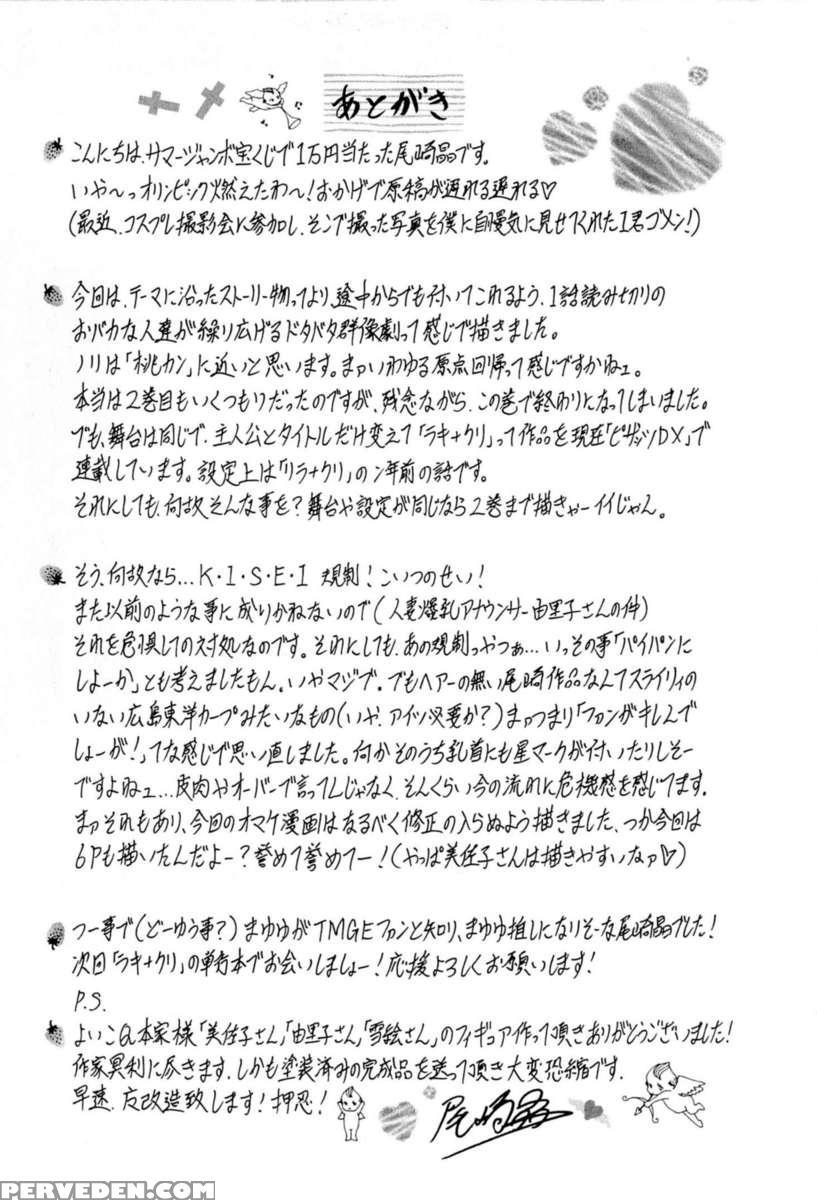 あとがき
こんにちは、サマージャンボ宝くじで1万円当たった尾崎晶です。
いや〜っオリンピック燃えたわ〜!おかげで原稿が遅れる遅れる♡
(最近、コスプレ撮影会に参加し、そこで撮った写真を僕に自慢気に見せてくれたI君ゴメン!)
今回は、テーマに沿ったストーリー物ってより、途中からでも付いてこれるよう、1話読み切りの
おバカな人達が繰り広げるドタバタ群像劇って感じで描きました。
ノリは「桃カン」に近いと思います。まァいわゆる原点回帰って感じですかねェ。
本当は2巻目もいくつもりだったのですが、残念ながら、この巻で終わりになってしまいました。
でも、舞台は同じで、主人公とタイトルだけ変えて「ラキ+クリ」って作品を現在「ピザッツDX」で
連載しています。設定上は「リラ+クリ」の 年前の話です。
それにしても、何故そんな事を?舞台や設定が同じなら2巻まで描きゃーイイじゃん。
そう、何故なら…K・I・S・E・I 規制!こいつのせい!
また以前のような事に成りかねないので(人妻爆乳アナウンサー由里子さんの件)
それを危惧しての対処なのです。それにしても、あの規制っやつァ…いっその事「パイパンに
しよーか」とも考えましたもん。いやマジで。でもヘアーの無い尾崎作品なんてスライリィの
いない広島東洋カープみたいなもの(いや、アイツ必要か?)まァつまり「ファンがキレんで
しょーが!」てな感じで思い直しました。何かそのうち乳首にも星マークが付いたりしそー
ですよねェ…皮肉やオーバーで言ってんじゃなく、そんくらい今の流れに危機感を感じてます。
まァそれもあり、今回のオマケ漫画はなるべく修正の入らぬよう描きました、つか今回は
6Pも描いたんだよー?誉めて誉めてー!(やっぱ美佐子さんは描きやすいなァ♡)
つー事で(どーゆう事?)まゆゆがTMGEファンと知り、まゆゆ推しになりそーな尾崎晶でした!
次回「ラキ+クリ」の単行本でお会いしましょー!応援よろしくお願いします!
P.S.
よいこ 本家様「美佐子さん」「由里子さん」「雪絵さん」のフィギュア作って頂きありがとうございました!
作家冥利に尽きます。しかも塗装済みの完成品を送って頂き大変恐縮です。
早速、 改造致します!押忍!
尾崎晶
PERVEDEN.COM